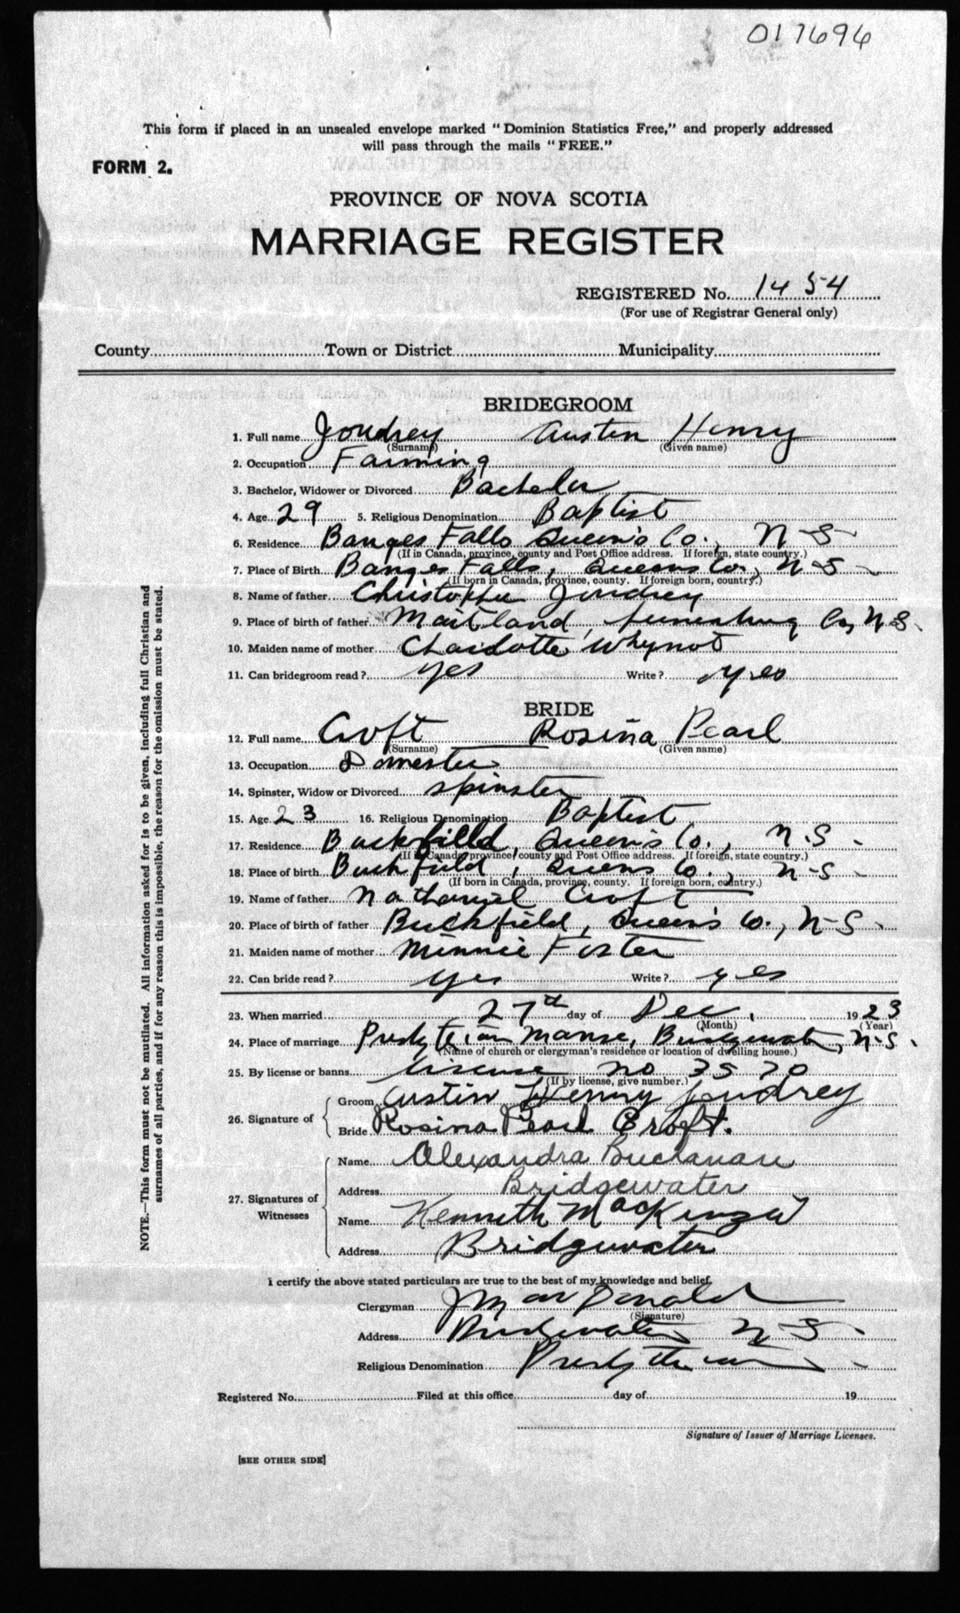 017696
This form if placed in an unsealed envelope marked "Dominion Statistics Free," and properly addressed
will pass through the mails "FREE."
FORM 2.
PROVINCE OF NOVA SCOTIA
MARRIAGE REGISTER
REGISTERED No. 1454
(For use of Registrar General only)
County Town or District Municipality
BRIDEGROOM
1. Full name Joudrey Austen Henry
(Surname) (Given name)
2. Occupation Farming
3. Bachelor, Widower or Divorced Bachelor
4. Age 29 5. Religious Denomination Baptist
6. Residence Banges Falls Queen's Co., N-S
(If in Canada, province, county and Post Office address. If foreign, state country.)
7. Place of Birth Banges Falls, Queens Co, N-S
(If born in Canada, province, county. If foreign born, country.)
8. Name of father Christopher Joudrey
9. Place of birth of father Maitland, Lunenburg Co, N-S.
10. Maiden name of mother Charlotte Whynot
11. Can bridegroom read? yes Write? yes
BRIDE
12. Full name Croft Rosina Pearl
(Surname) (Given name)
13. Occupation Domestic
14. Spinster, Widow or Divorced spinster
15. Age 23 16. Religious Denomination Baptist
17. Residence Buckfield, Queen's Co., N.S.
(If in Canada, province, county and Post Office address. If foreign, state country.)
18. Place of birth Buckfield, Queens Co., N-S
(If born in Canada, province, county. If foreign born, country.)
19. Name of father Nathanyel Croft
20. Place of birth of father Buckfield, Queen's Co., N-S.
21. Maiden name of mother Minnie Foster
22. Can bride read? yes Write? yes
23. When married 27th day of Dec. 1923
(Month) (Year)
24. Place of marriage Presbyterian Manse, Bridgewater, N.S.
(Name of church or clergyman's residence or location of dwelling house.)
25. By license or banns License no 3570
(If by license, give number.)
26. Signature of
Groom Austin Henry Joudrey
Bride Rosina Pearl Croft.
27. Signatures of Witnesses
Name Alexandra Buchanan
Address Bridgewater
Name Kenneth MacKenzie
Address Bridgewater
I certify the above stated particulars are true to the best of my knowledge and belief.
Clergyman MacDonald
(Signature)
Address Bridgewater N-S.
Religious Denomination Presbyterian
Registered No. Filed at this office day of 19
Signature of Issuer of Marriage Licenses.
[SEE OTHER SIDE]
NOTE.—This form must not be mutilated. All information asked for is to be given, including full Christian and
surnames of all parties, and if for any reason this is impossible, the reason for the omission must be stated.